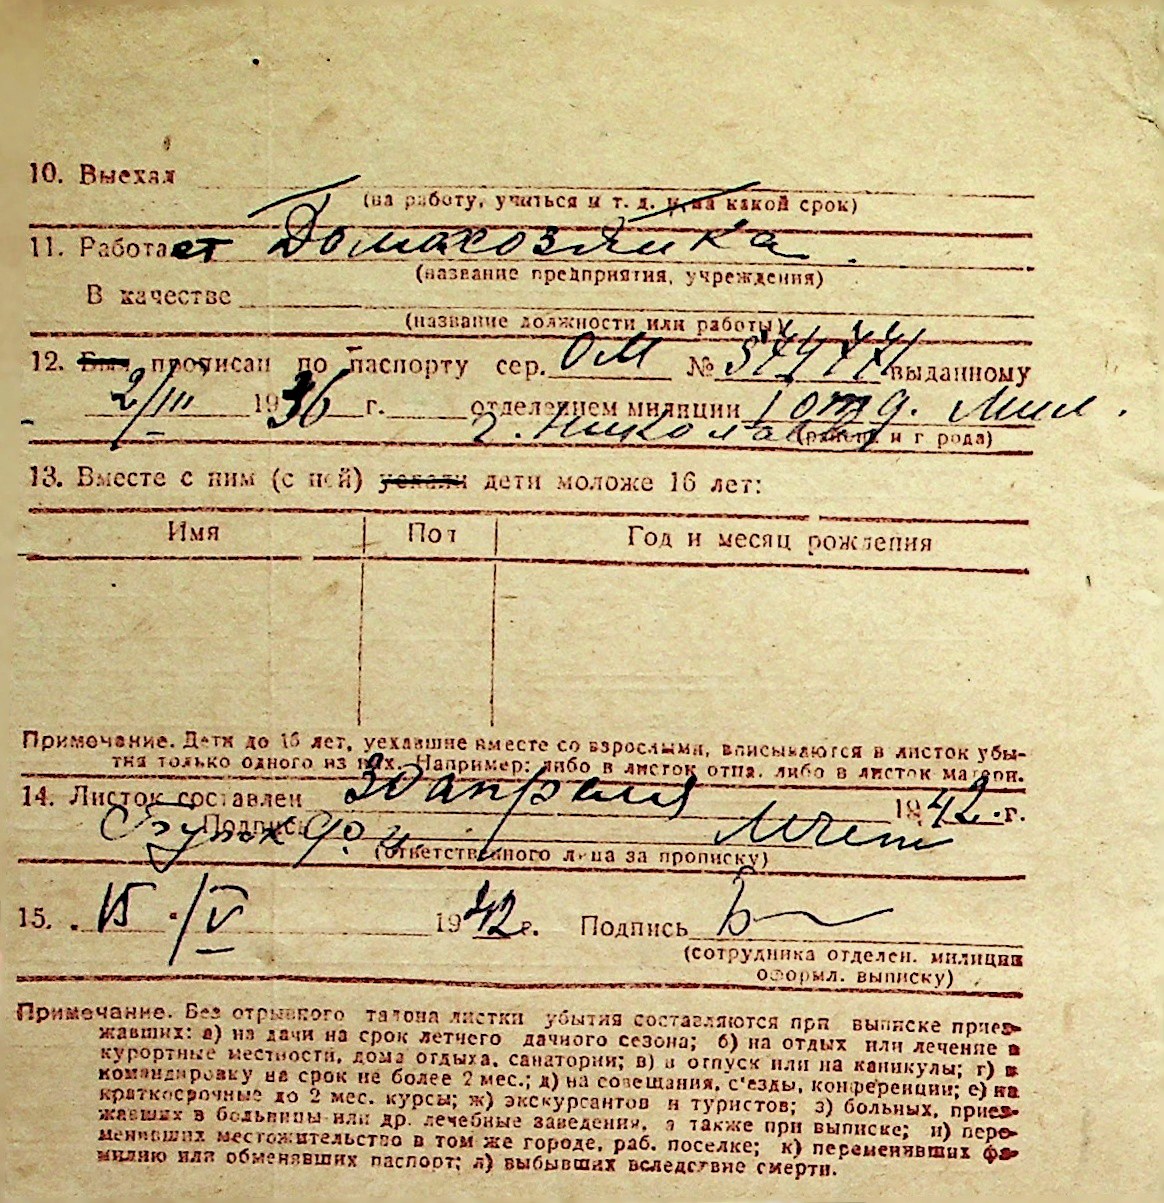 10. Выехал
(на работу, учиться и т. д. и на какой срок)
11. Работает Домахозяйка
(название предприятия, учреждения)
В качестве
(название должности или работы)
12. Был прописан по паспорту сер. ОМ № выданному
2/III 1936 г. отделением милиции 1 отд. Мил.
г. Николаев (район и города)
13. Вместе с ним (с ней) уехали дети моложе 16 лет:
Имя Пол Год и месяц рождения
Примечание. Дети до 16 лет, уехавшие вместе со взрослыми, вписываются в листок убы-
тия только одного из них. Например: либо в листок отца, либо в листок матери.
14. Листок составлен 30 апреля 1942. г.
Подпись
(ответственного лица за прописку)
15. 15 /V 1942 г. Подпись
(сотрудника отделен. милиции
оформл. выписку)
Примечание. Без отрывного талона листки убытия составляются при выписке приез-
жавших: а) на дачи на срок летнего дачного сезона; б) на отдых или лечение в
курортные местности, дома отдыха, санатории; в) в отпуск или на каникулы; г) в
командировку на срок не более 2 мес.; д) на совещания, с'езды, конференции; е) на
краткосрочные до 2 мес. курсы; ж) экскурсантов и туристов; з) больных, приез-
жавших в больницы или др. лечебные заведения, а также при выписке; и) пере-
менивших местожительство в том же городе, раб. поселке; к) переменявших фа-
милию или обменявших паспорт; л) выбывших вследствие смерти.